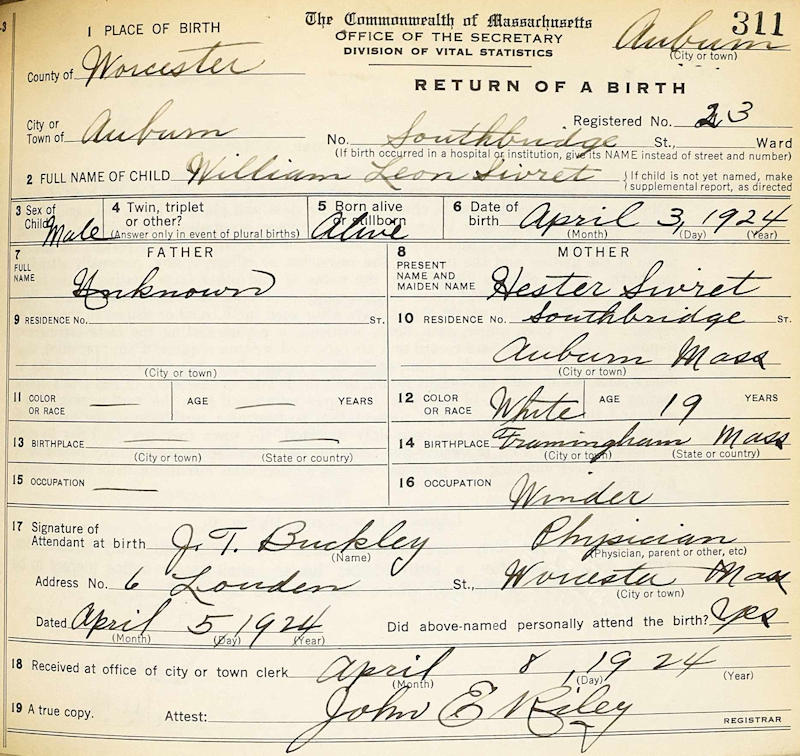 3
The Commonwealth of Massachusetts
311
OFFICE OF THE SECRETARY
DIVISION OF VITAL STATISTICS
Auburn
(City or town)
1 PLACE OF BIRTH
County of Worcester
RETURN OF A BIRTH
Registered No. 23
City or Town of Auburn
No. Southbridge St., Ward
(If birth occurred in a hospital or institution, give its NAME instead of street and number)
2 FULL NAME OF CHILD William Leon Sivret { If child is not yet named, make supplemental report, as directed
3 Sex of Child Male
4 Twin, triplet or other?
(Answer only in event of plural births)
5 Born alive or stillborn Alive
6 Date of birth April 3, 1924
(Month) (Day) (Year)
7 FATHER
FULL NAME Unknown
8 MOTHER
PRESENT NAME AND MAIDEN NAME Hester Sivret
9 RESIDENCE No. ST.
(City or town)
10 RESIDENCE No. Southbridge ST.
Auburn Mass
(City or town)
11 COLOR OR RACE — AGE — YEARS
12 COLOR OR RACE White AGE 19 YEARS
13 BIRTHPLACE — —
(City or town) (State or country)
14 BIRTHPLACE Framingham Mass
(City or town) (State or country)
15 OCCUPATION —
16 OCCUPATION Winder
17 Signature of Attendant at birth J. T. Buckley Physician
(Name) (Physician, parent or other, etc)
Address No. 6 Louden St., Worcester Mass
(City or town)
Dated April 5, 1924 Did above-named personally attend the birth? Yes
(Month) (Day) (Year)
18 Received at office of city or town clerk April 8, 1924
(Month) (Day) (Year)
19 A true copy. Attest: John E Riley
REGISTRAR